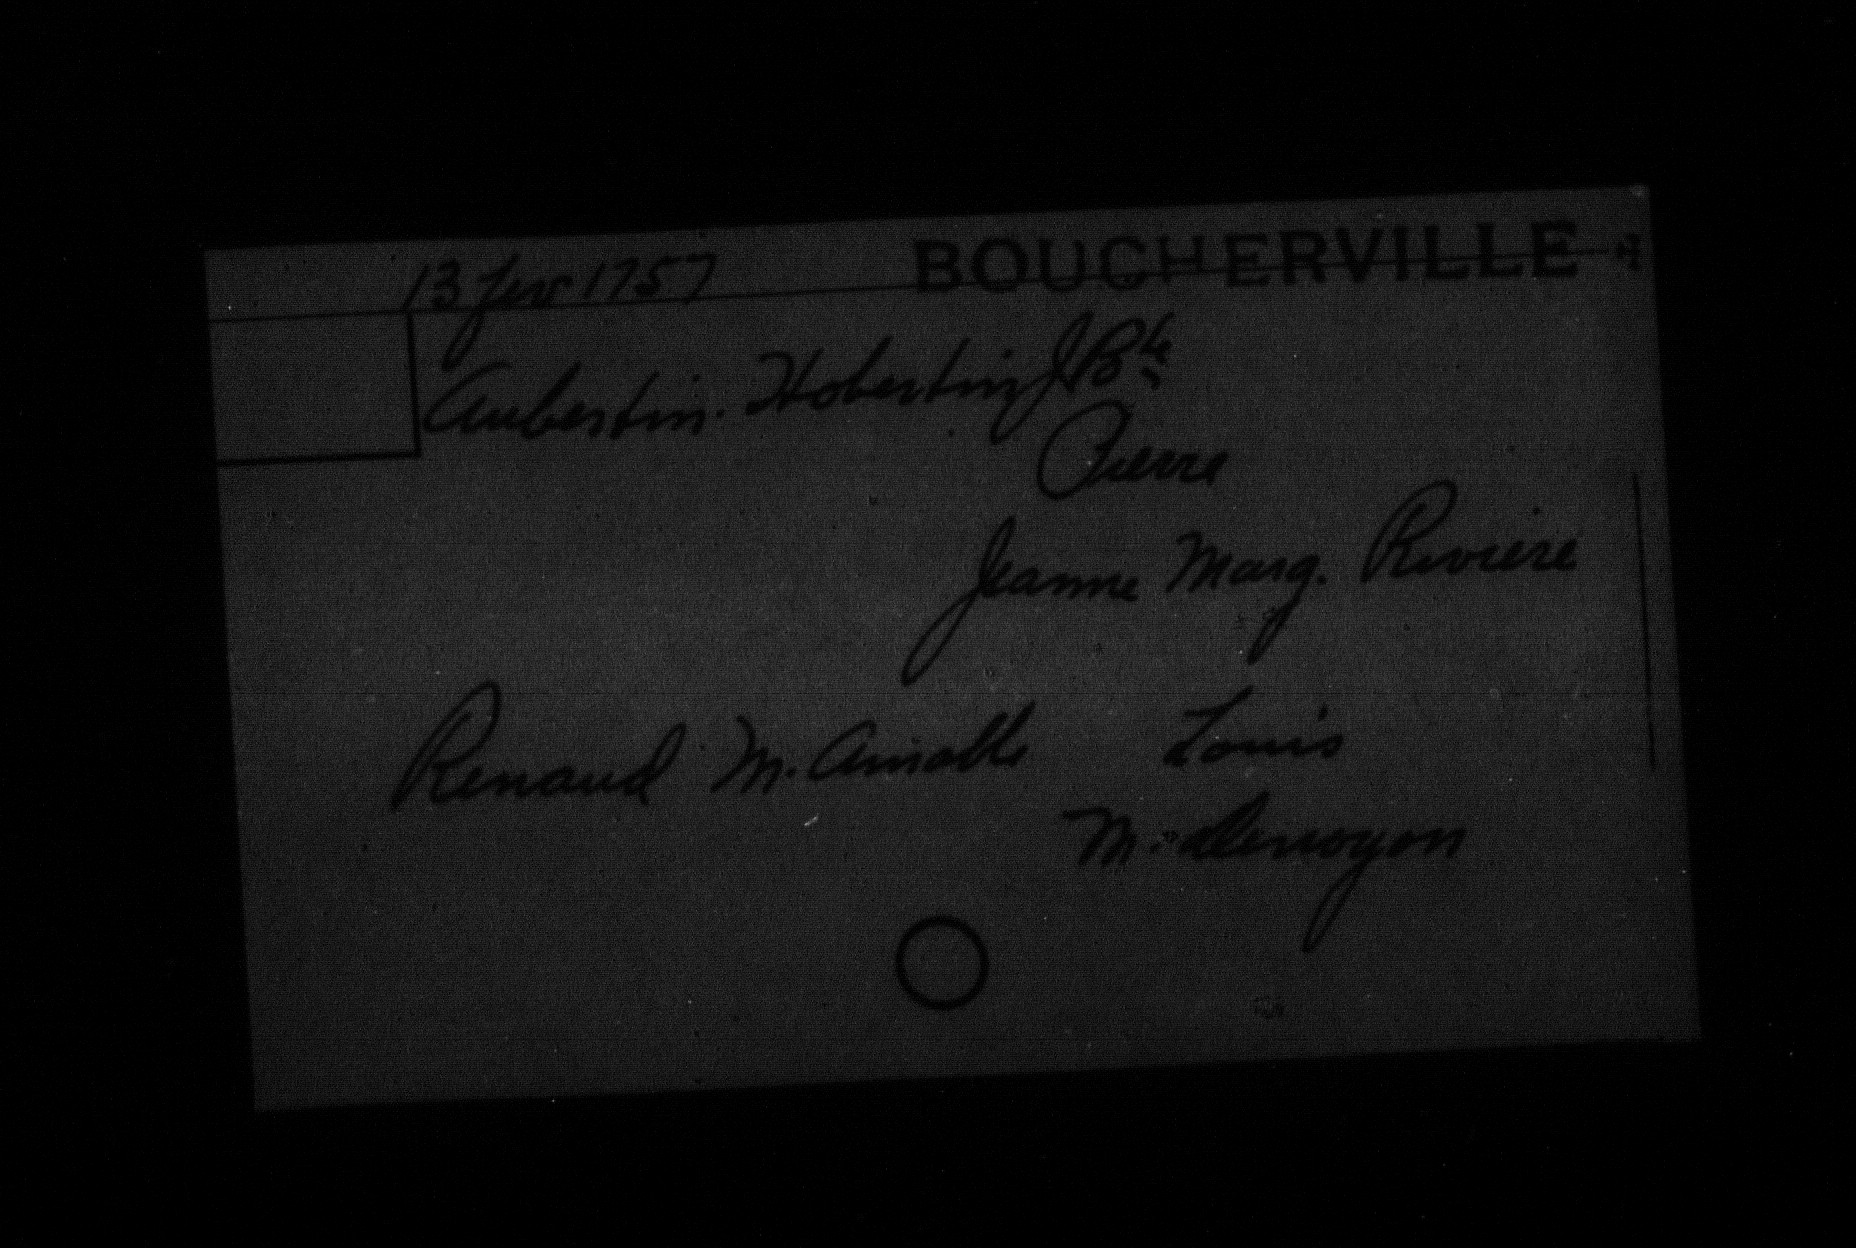 13 fev 1757 BOUCHERVILLE
Aubertin. Hobertin J Bte
Pierre
Jeanne Marg. Riviere
Renaud M. Amable Louis
M. Denoyon